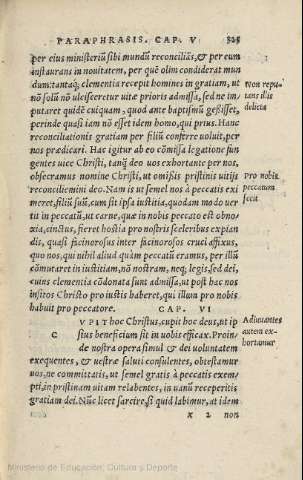 PARAPHRASIS. CAP. V 325
per eius ministeriū sibi mundū reconciliās, & per eum
instaurans in nouitatem, per quē olim condiderat mun
dum: tantaq; clementia recepit homines in gratiam, ut
nō solū nō ulcisceretur uitæ prioris admissa, sed ne im
putaret quidē cuiquam, quod ante baptismū gessisset,
perinde quasi iam nō esset idem homo, qui prius. Hanc
reconciliationis gratiam per filiū conferre uoluit, per
nos prædicari. Hac igitur ab eo cōmissa legatione fun
gentes uice Christi, tanq̃ deo uos exhortante per nos,
obsecramus nomine Christi, ut omißis pristinis uitijs
reconciliemini deo. Nam is ut semel nos à peccatis exi
meret, filiū suū, cum sit ipsa iustitia, quodam modo uer
tit in peccatū, ut carne, quæ in nobis peccato est obno
xia, cinctus, fieret hostia pro nostris sceleribus expian
dis, quasi facinorosus inter facinorosos cruci affixus,
quo nos, qui nihil aliud quàm peccatū eramus, per illū
cōmutaret in iustitiam, nō nostram, neq; legis, sed dei,
cuius clementia cōdonata sunt admissa, ut post hac nos
insitos Christo pro iustis haberet, qui illum pro nobis
habuit pro peccatore. CAP. VI
CVPIT hoc Christus, cupit hoc deus, ut ip
sius beneficium sit in uobis efficax. Proin
de nostra opera simul & dei uoluntatem
exequentes, & uestræ saluti consulentes, obtestamur
uos, ne committatis, ut semel gratis à peccatis exem
pti, in pristinam uitam relabentes, in uanū receperitis
gratiam dei. Nūc licet sarcire, si quid labimur, at idem
x 2 non
Non repu
tans illis
delicta
Pro nobis
peccatum
fecit
Adiuuantes
autem ex-
hortamur
Ministerio de Educación, Cultura y Deporte